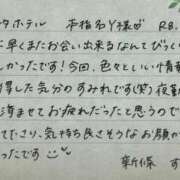 タホテル 本指名Y様 R8.
早くまたお会い出来るなんてびっくり
かったです！今回、色々といい情報
得した気分のすみれです(笑)夜勤
済ませてお疲れだったと思うので
たり、気持ち良さそうなお顔が
ったです
新條 す